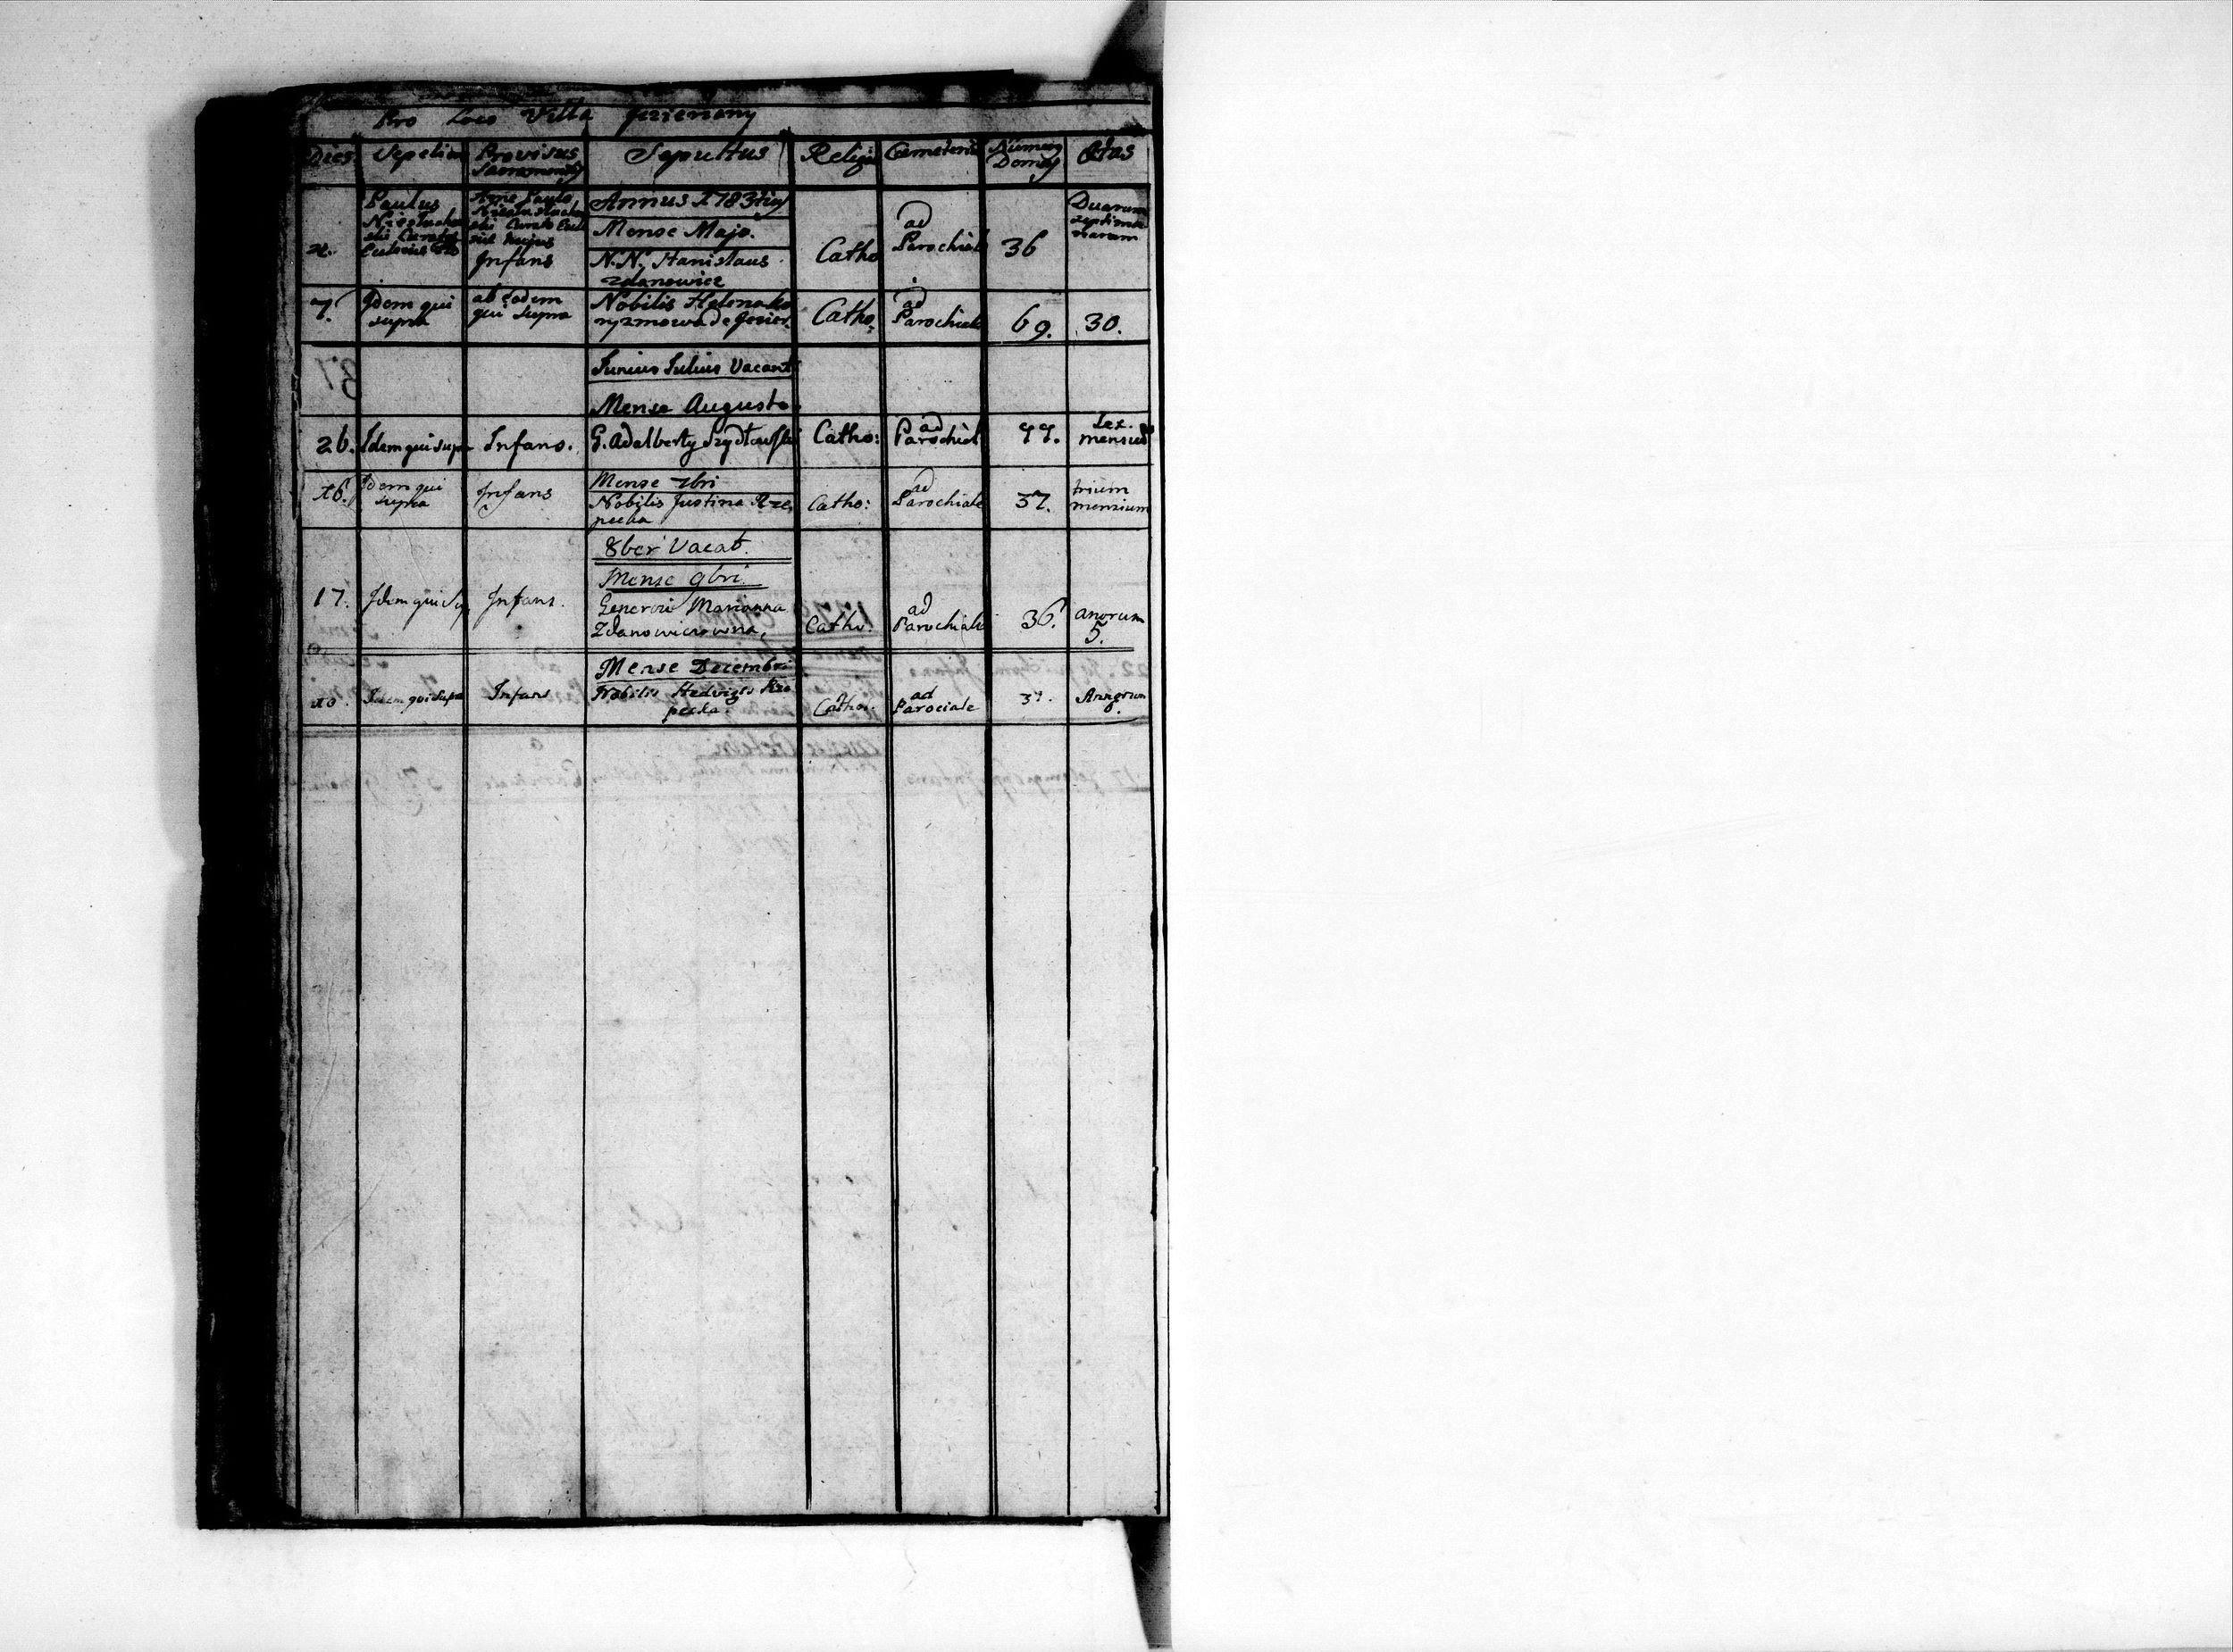 Pro Loco Villa Jezierzany
Dies Sepelivit Provisus Sacramentis Sepultus Religio Cemeterium Numerus Domus Etas
Annus 1783tius
Mense Majo.
Paulus
Infans
N.N. Stanislaus
Zdanowicz
Catho
ad
Parochiale
36
Duarum
septima
narum
7. Idem qui
supra
ab eodem
qui supra
Nobilis Helena
Catho:
ad
Parochiale
69. 30.
Junius Julius Vacant
Mense Augusto
26. Idem qui supra Infans. G. Adalbertg Szydłowski Catho: ad
Parochial
Sex
mensium
Mense 7bri
16. Idem qui
supra
Infans
Nobilis Justina Rze
pecka
Catho:
ad
Parochiale
37. trium
mensium
8ber Vacat.
Mense 9bri.
17. Idem qui Sup Infans.
Generosi Marianna
Zdanowiczowna,
Catho:
ad
Parochiale
36. anorum
5.
Mense Decembri
10. Idem qui Supra Infans
Nobilis Hedvigis Rze
pecka.
Catho:
ad
Parociale
37. Annorum
6.